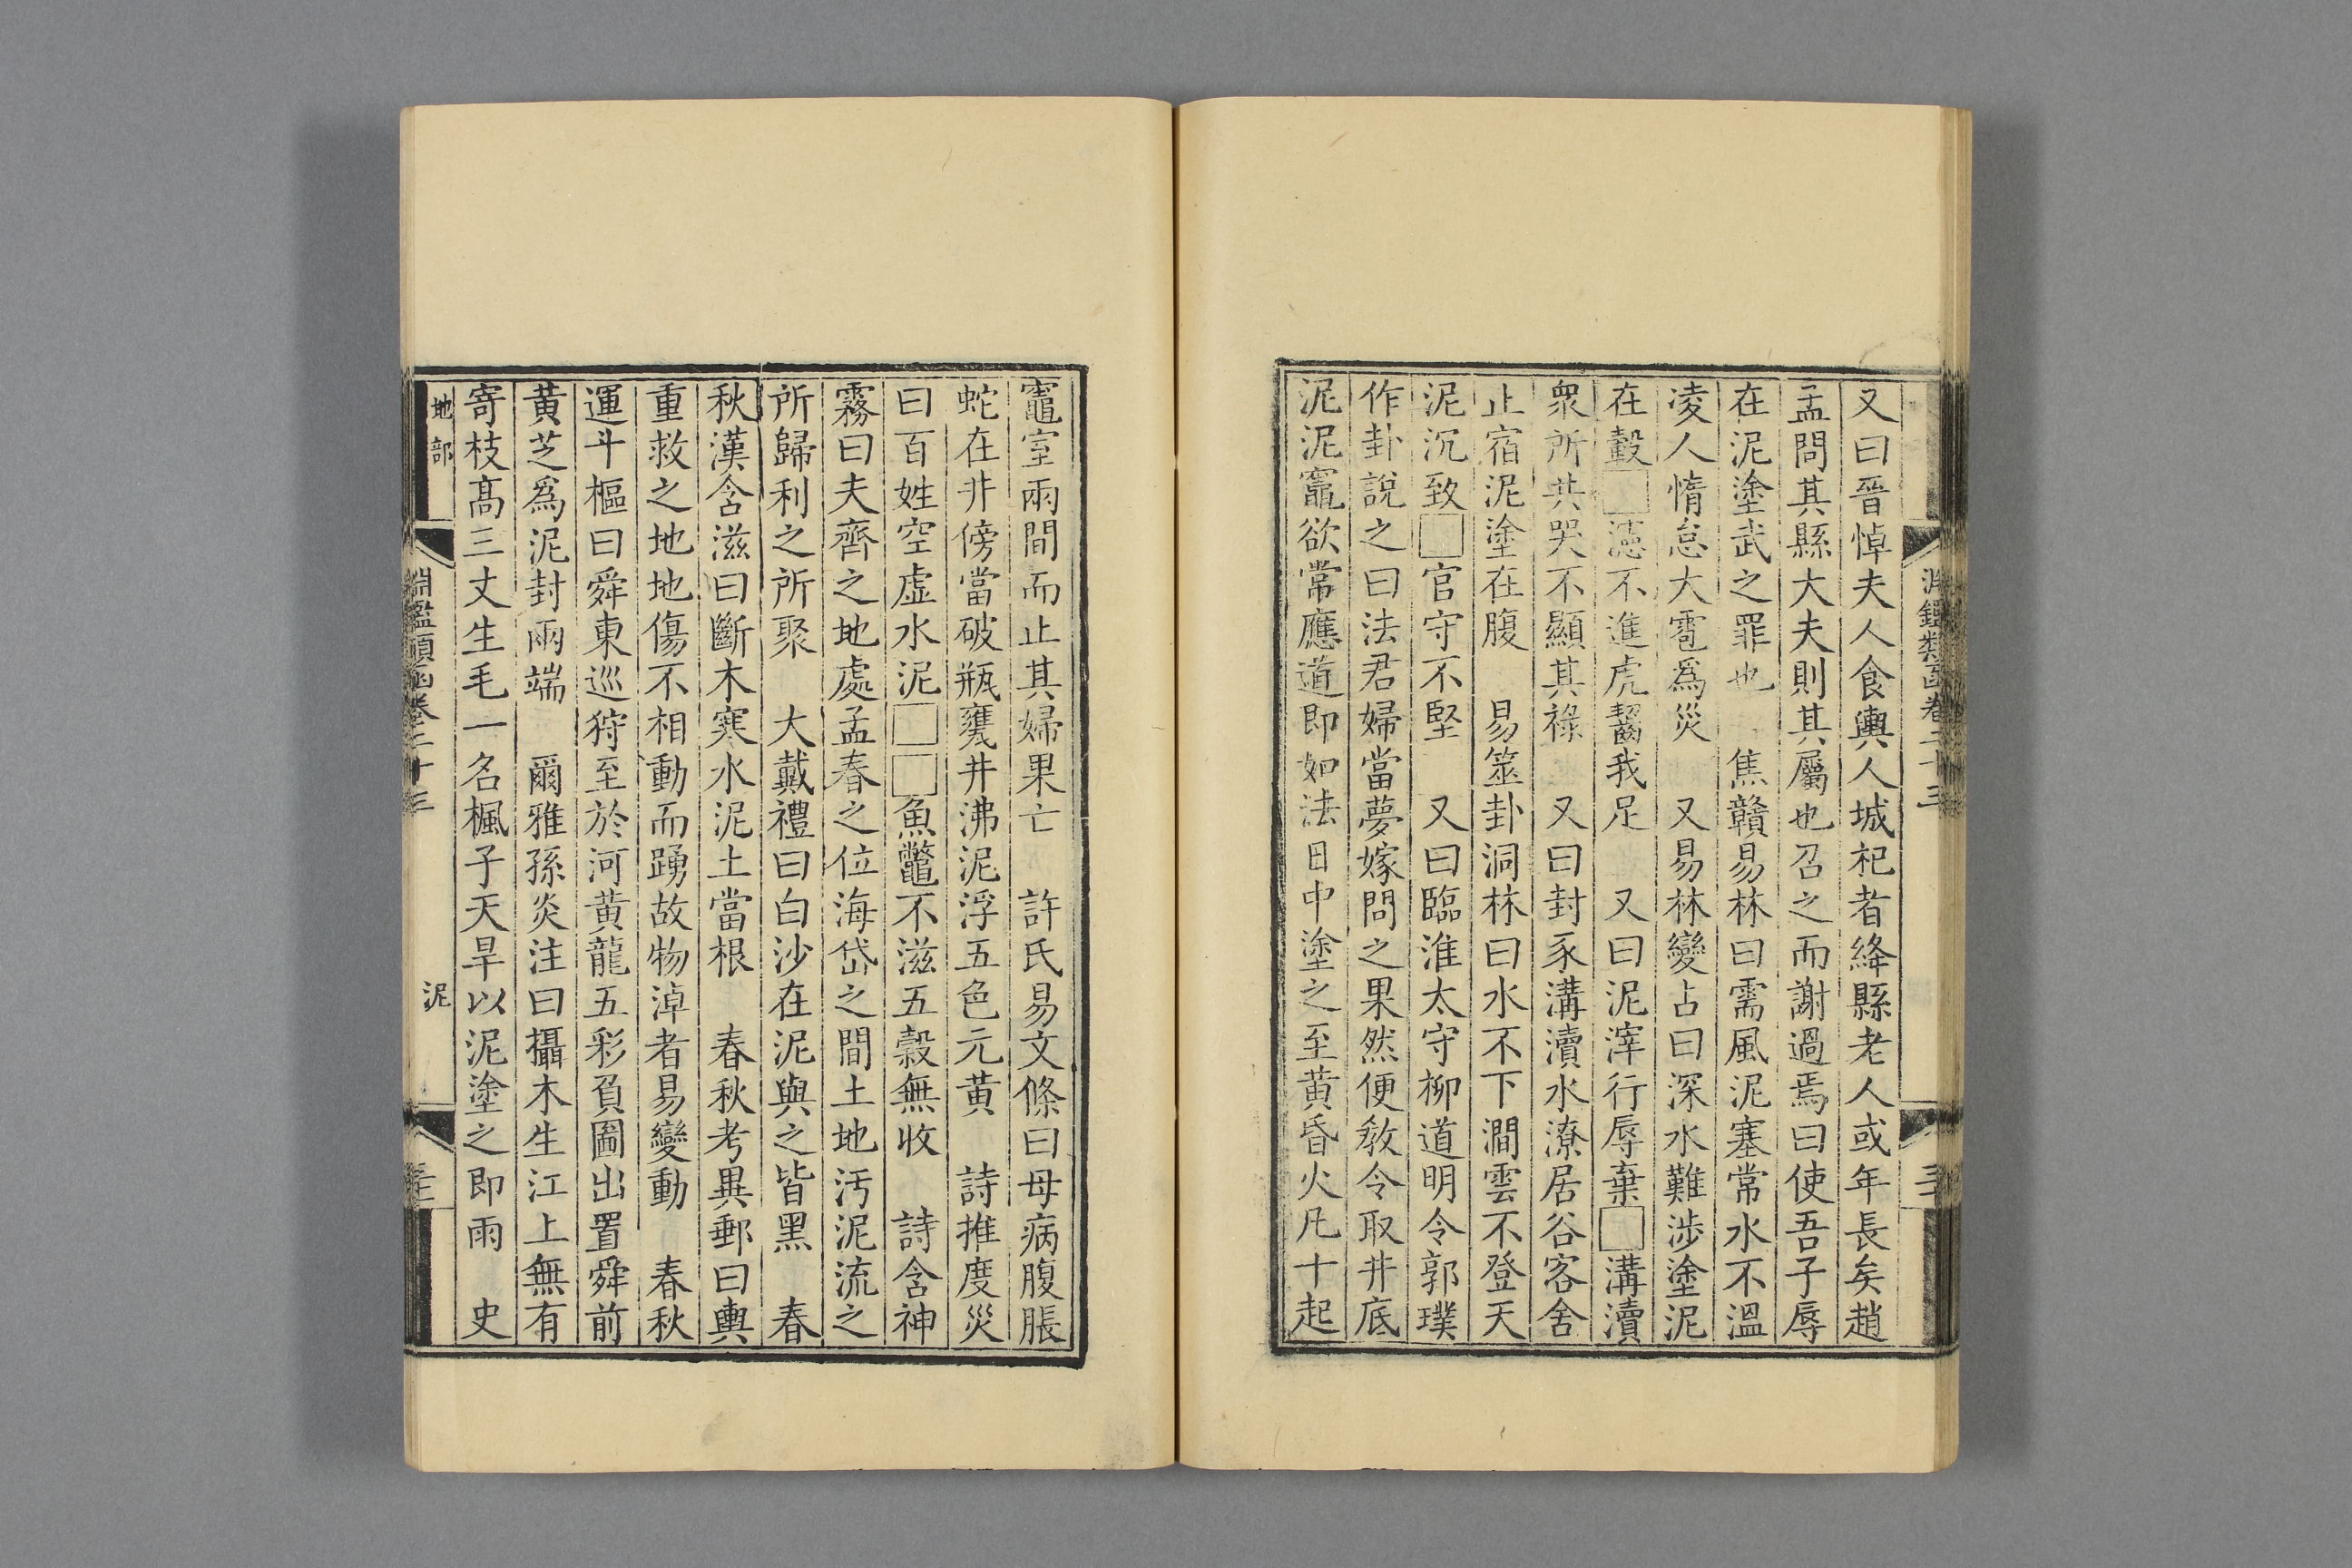 又曰晉悼夫人食輿人城杞者絳縣老人或年長矣趙
孟問其縣大夫則其屬也召之而謝過焉曰使吾子辱
在泥塗武之罪也　焦贛易林曰需風泥塞常水不溫
凌人惰怠大雹爲災　又易林變占曰深水難涉塗泥
在轂□濡不進虎齧我足　又曰泥滓行辱棄□溝瀆
衆所共哭不顯其祿　又曰封豕溝瀆水潦居谷客舍
止宿泥塗在腹　易筮卦洞林曰水不下澗雲不登天
泥沉致□官守不堅　又曰臨淮太守柳道明令郭璞
作卦說之曰法君婦當夢嫁問之果然便教令取井底
泥泥竈欲常應道即如法日中塗之至黃昏火凡十起
竈室兩間而止其婦果亡　許氏易文條曰母病腹脹
蛇在井傍當破瓶甕井沸泥浮五色元黃　詩推度災
曰百姓空虛水泥□□魚鼈不滋五穀無收　詩含神
霧曰夫齊之地處孟春之位海岱之間土地污泥流之
所歸利之所聚　大戴禮曰白沙在泥與之皆黑　春
秋漢含滋曰斷木寒水泥土當根　春秋考異郵曰輿
重救之地地傷不相動而踴故物淖者易變動　春秋
運斗樞曰舜東巡狩至於河黃龍五彩負圖出置舜前
黃芝爲泥封兩端　爾雅孫炎注曰攝木生江上無有
寄枝高三丈生毛一名楓子天旱以泥塗之即雨　史
地部
淵鑑類函卷二十三
泥